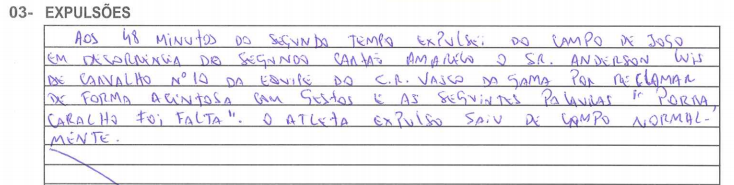 03- EXPULSÕES
AOS 48 MINUTOS DO SEGUNDO TEMPO EXPULSEI DO CAMPO DE JOGO
EM DECORRÊNCIA DO SEGUNDO CARTÃO AMARELO O SR. ANDERSON LUIS
DE CARVALHO Nº 10 DA EQUIPE DO C.R. VASCO DA GAMA POR RECLAMAR
DE FORMA ACINTOSA COM GESTOS E AS SEGUINTES PALAVRAS " PORRA,
CARALHO FOI FALTA". O ATLETA EXPULSO SAIU DE CAMPO NORMAL-
MENTE.